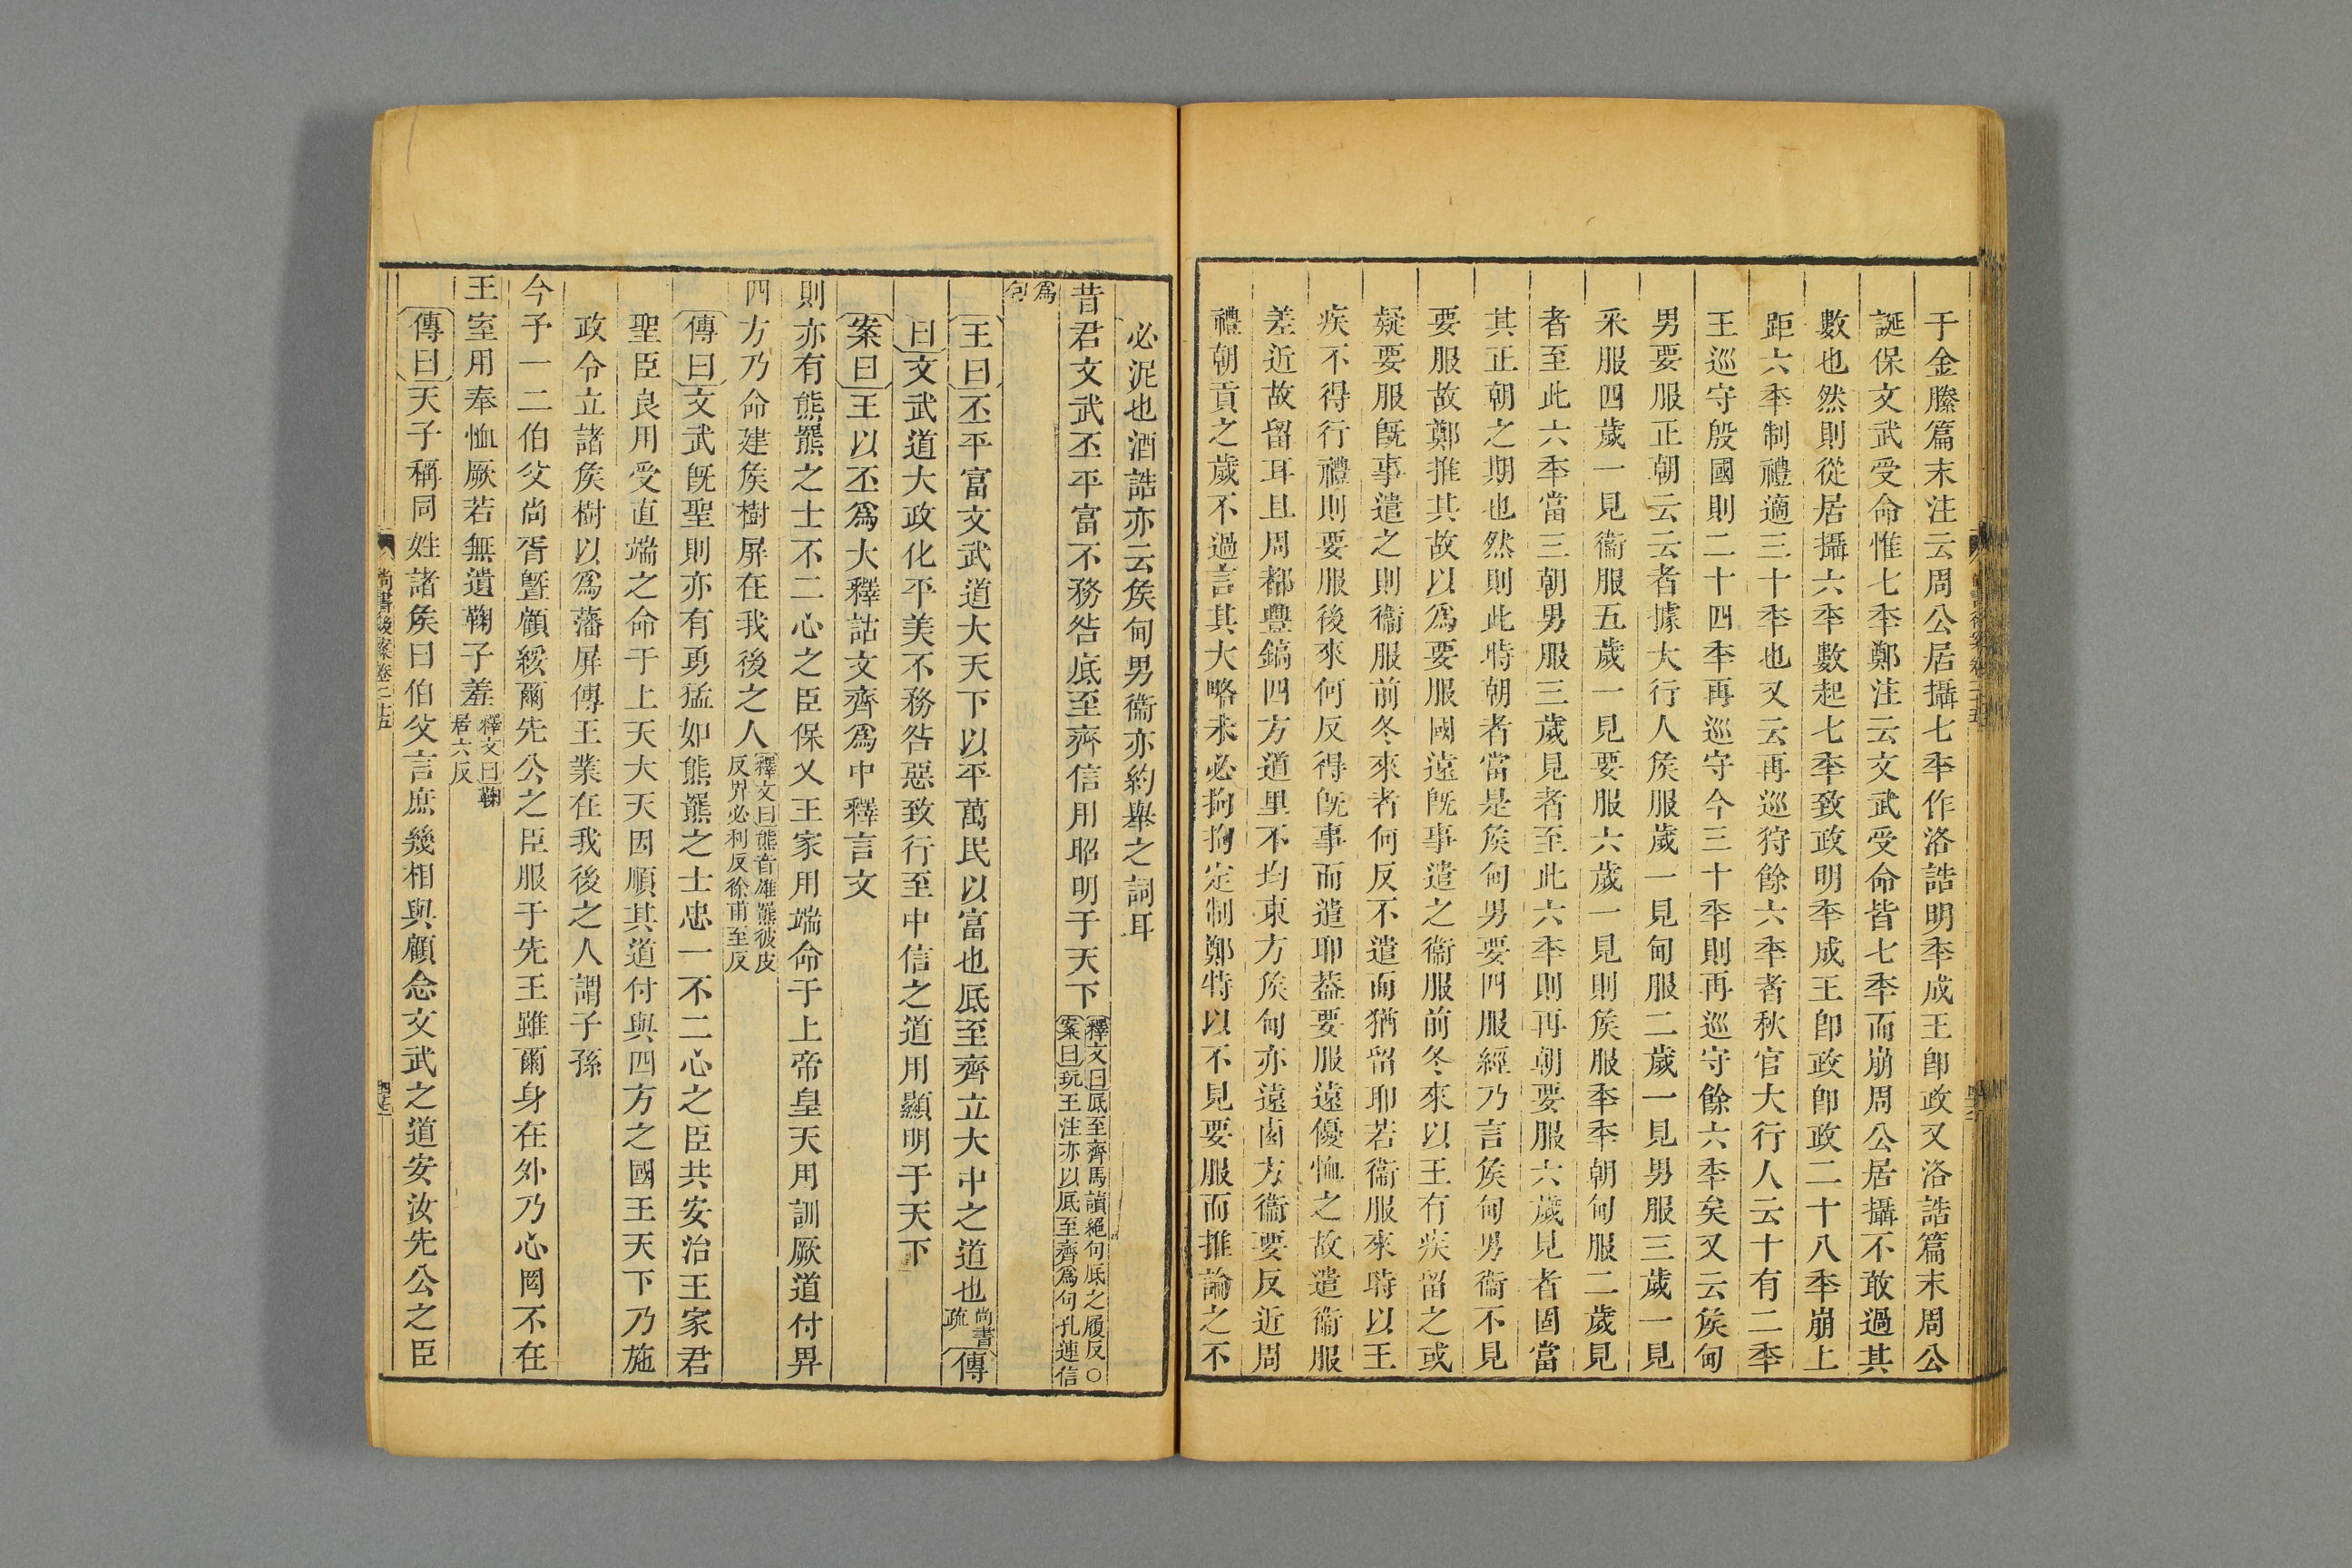 于金縢篇末注云周公居攝七秊作洛誥明秊成王卽政又洛誥篇末周公
誕保文武受命惟七秊鄭注云文武受命皆七秊而崩周公居攝不敢過其
數也然則從居攝六秊數起七秊致政明秊成王卽政卽政二十八秊崩上
距六秊制禮適三十秊也又云再巡狩餘六秊者秋官大行人云十有二秊
王巡守殷國則二十四秊再巡守今三十秊則再巡守餘六秊矣又云矦甸
男要服正朝云云者據大行人矦服歲一見甸服二歲一見男服三歲一見
采服四歲一見衞服五歲一見要服六歲一見則矦服秊秊朝甸服二歲見
者至此六秊當三朝男服三歲見者至此六秊則再朝要服六歲見者固當
其正朝之期也然則此時朝者當是矦甸男要四服經乃言矦甸男衞不見
要服故鄭推其故以爲要服國遠旣事遣之衞服前冬來以王有疾留之或
疑要服旣事遣之則衞服前冬來者何反不遣而猶留耶若衞服來時以王
疾不得行禮則要服後來何反得旣事而遣耶葢要服遠優恤之故遣衞服
差近故留耳且周都豐鎬四方道里不均東方矦甸亦遠西方衞要反近周
禮朝貢之歲不過言其大略未必拘拘定制鄭特以不見要服而推論之不
必泥也酒誥亦云矦甸男衞亦約舉之詞耳
昔君文武丕平富不務咎厎至齊信用昭明于天下
釋文曰厎至齊馬讀絕句厎之履反○
案曰玩王注亦以厎至齊爲句孔連信
爲
句
王曰丕平富文武道大天下以平萬民以富也厎至齊立大中之道也尚書疏傳
曰文武道大政化平美不務咎惡致行至中信之道用顯明于天下
案曰王以丕爲大釋詁文齊爲中釋言文
則亦有熊羆之士不二心之臣保乂王家用端命于上帝皇天用訓厥道付畀
四方乃命建矦樹屏在我後之人
釋文曰熊音雄羆彼皮
反畀必利反徐甫至反
傳曰文武旣聖則亦有勇猛如熊羆之士忠一不二心之臣共安治王家君
聖臣良用受直端之命于上天大天因順其道付與四方之國王天下乃施
政令立諸矦樹以爲藩屏傅王業在我後之人謂子孫
今予一二伯父尚胥曁顧綏爾先公之臣服于先王雖爾身在外乃心罔不在
王室用奉恤厥若無遺鞠子羞
釋文曰鞠
居六反
傳曰天子稱同姓諸矦曰伯父言庶幾相與顧念文武之道安汝先公之臣
尚書後案卷二十五